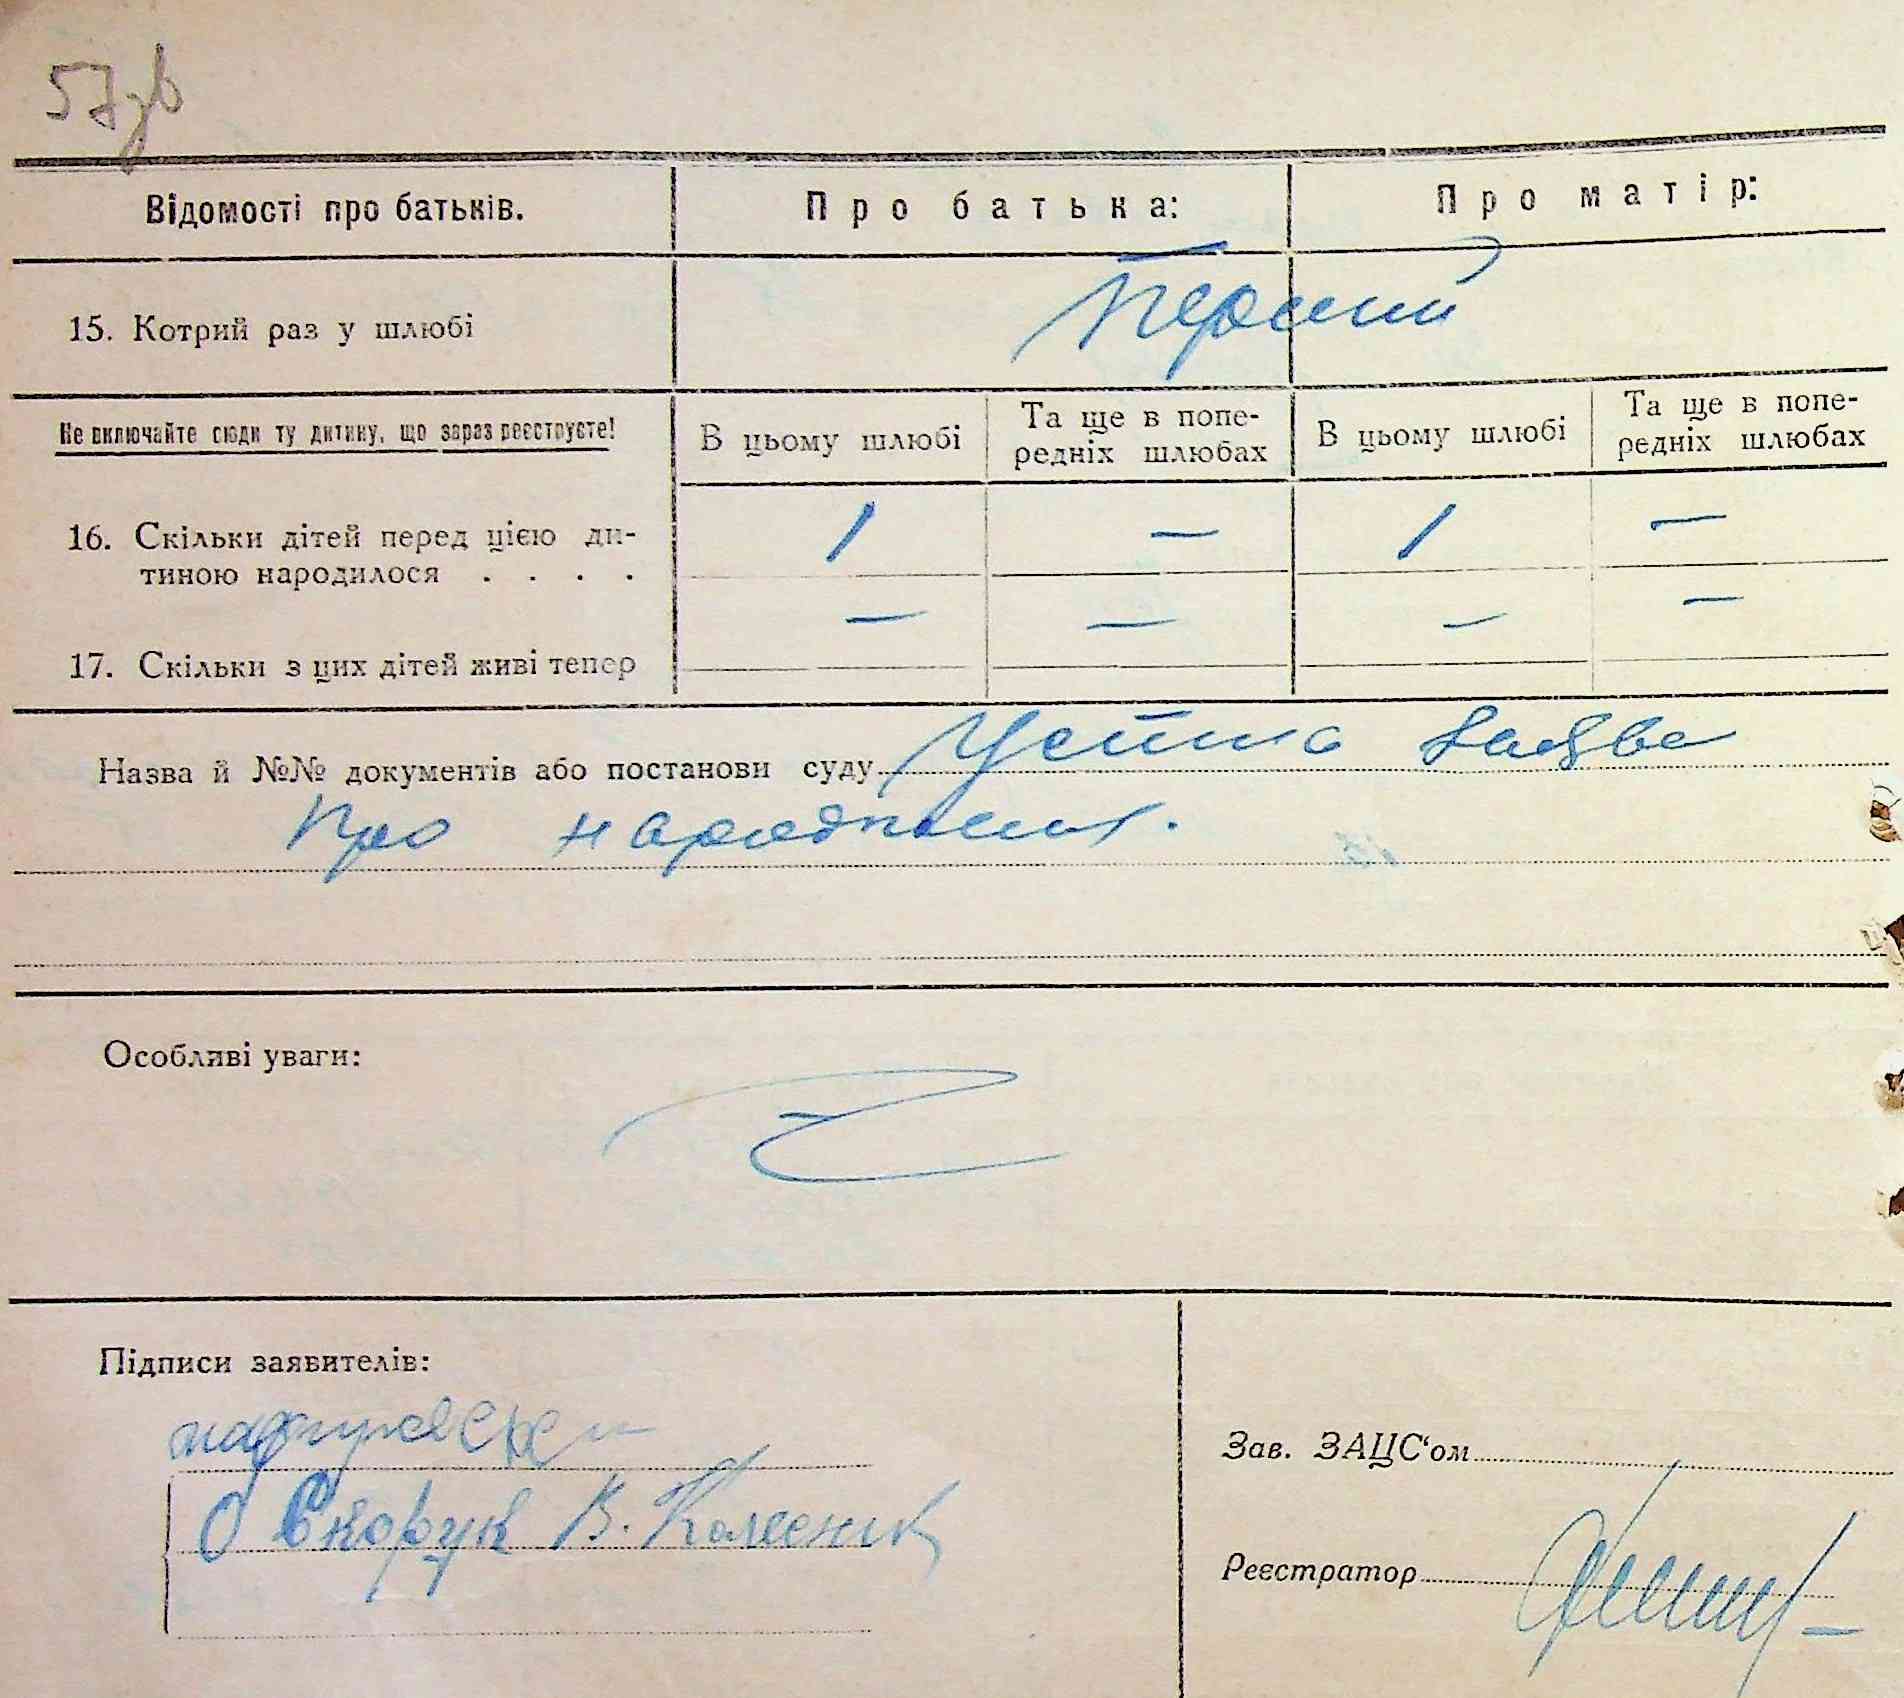 57зв
Відомості про батьків. Про батька: Про матір:
15. Котрий раз у шлюбі Перший
Не включайте сюди ту дитину, що зараз реєструєте! В цьому шлюбі Та ще в попе-редніх шлюбах В цьому шлюбі Та ще в попе-редніх шлюбах
16. Скільки дітей перед цією ди- 1 — 1 —
тиною народилося . . . .
— — — —
17. Скільки з цих дітей живі тепер
Назва й №№ документів або постанови суду Устна заява
про народження.
Особливі уваги:
Підписи заявителів:
Зав. ЗАЦС‘ом
О Скорук В. Колесник
Реєстратор